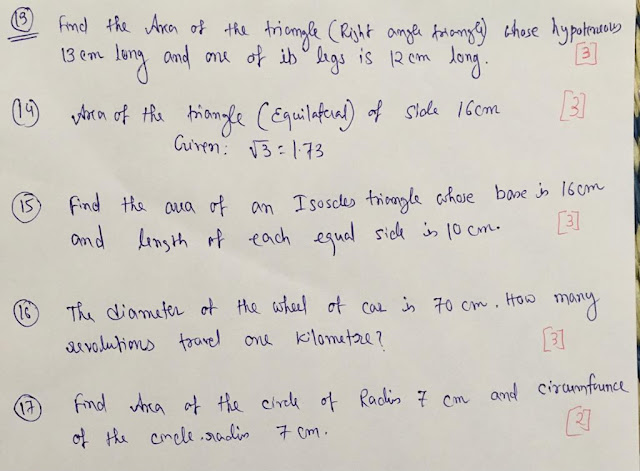 (13) Find the Area of the triangle (Right angle triangle) whose hypoteneous
13 cm long and one of its legs is 12 cm long. [3]
(14) Area of the triangle (Equilateral) of side 16cm [3]
Given: √3 = 1.73
(15) Find the area of an Isoscles triangle whose base is 16cm
and length of each equal side is 10 cm. [3]
(16) The diameter of the wheel of car is 70 cm. How many
revolutions travel one kilometre? [3]
(17) Find Area of the circle of Radius 7 cm and circumfrunce
of the circle radius 7 cm. [2]